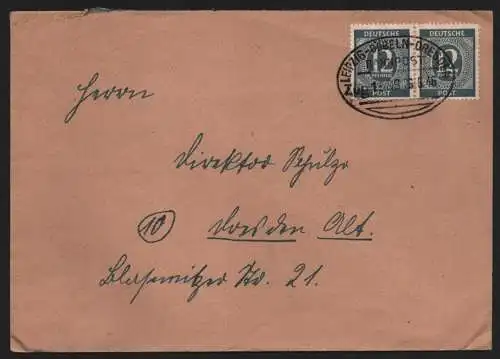 DEUTSCHE DEUTSCHE
12 12
PFENNIG
POST POST
LEIPZIG-DÖBELN-DRESDEN
BAHNPOST
Herrn
Direktor Schulze
(10) Dresden Alt.
Blasewitzer Str. 21.